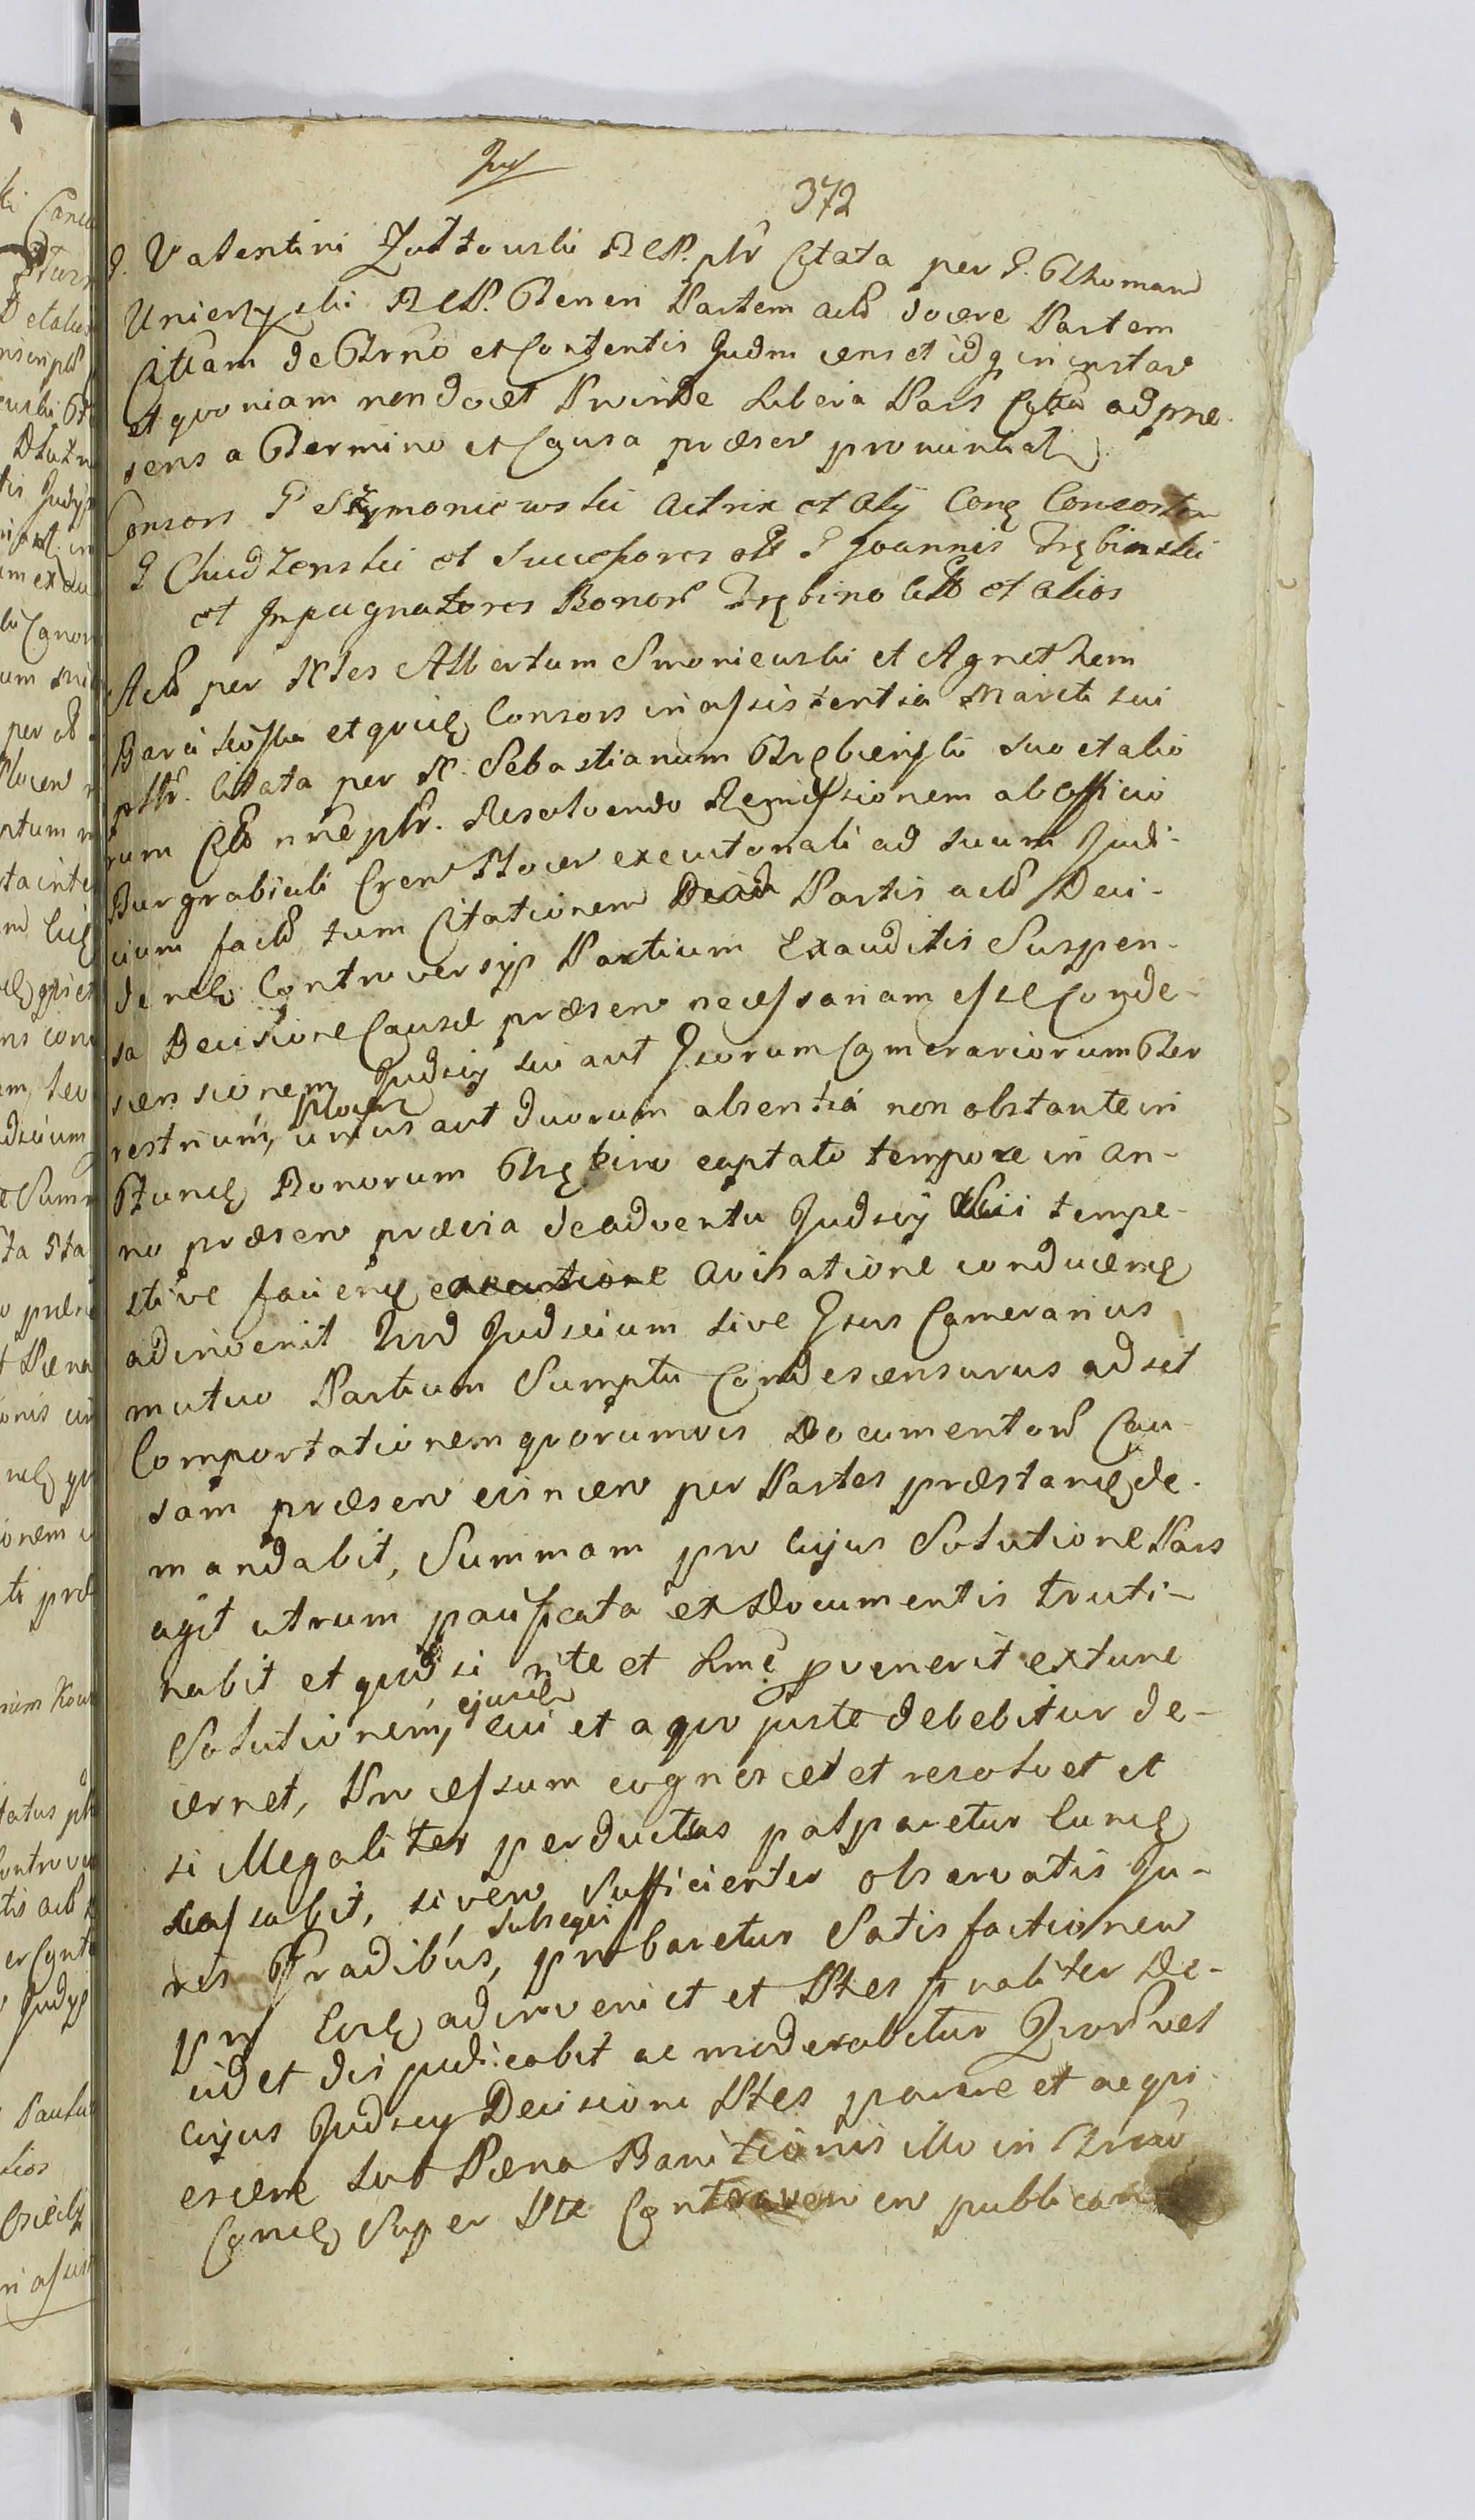 372
G. Valentini Zołtowski REP. pltr Citata per G. Thomam
Unierzyski REP. Teneri Partem acto docere Partem
Cittam de Trno et Contentis Judm cens et idq in instar
et quoniam non docet Proinde Libera Pars Citta ad prae-
sens a Termino et Causa praesen pronuntiat
Consors G Szymoniewski Actrix et Alij Conq Consortem
G Chudzenski et Successores olt G Joannis Trębinski
et Impugnatores Bonor Trębino Citt et alios
Actt per Ptes Albertum Smoniewski et Agnethem
Barcikoska et quicq Consors in assistentia Mariti sui
pltr. Citata per N. Sebastianum Trębienski suo et alio
rum Ctt nne pltr. Resolvendo Remissionem ab Officio
Burgrabiali Cren Plocen executoriali ad suum Judi-
cium factt tum Citationem Partis actt Deci-
dendo Controversijs Partium Exauditis Suspen-
sa Decisione Causae praesen necessariam esse Conde-
scensionem Judicij sui aut Jsorum Camerariorum Ter
restrium, Plocen unius aut duorum absentia non obstante in
Fundq Bonorum Trębino captato tempore in an-
no praesen praevia de adventu Judicij sui tempe-
stive faciendq executione avisatione conducendq
adinvenit Quod Judicium sive Jsius Camerarius
mutuo Partium Sumptu Condescensurus adsit
Comportationem quorumvis Documentor Cau-
sam praesen eisncen per Partes praestandq de-
mandabit, Summam pro cujus Solutione Pars
agit utrum pacificata ex Documentis truti-
nabit et quod si rite et Lme pvenerit extunc
Solutionem, ejusdem cui et a quo juste debebitur de-
cernet, Processum cognoscet et resolvet et
si Illegaliter perductus palparetur Eundq
cassabit, si vero Sufficienter observatis Ju-
ris Gradibus, subsequi probaretur Satisfactionem
pro Eodq adinveniet et Ptes finaliter De-
cidet dis judicabit ac moderabitur Quor vel
cujus Judicij Decisioni Ptes parere et acqui-
escere sub Paena Banitionis illo in Trno
Condq Super Pte Contraven en publican